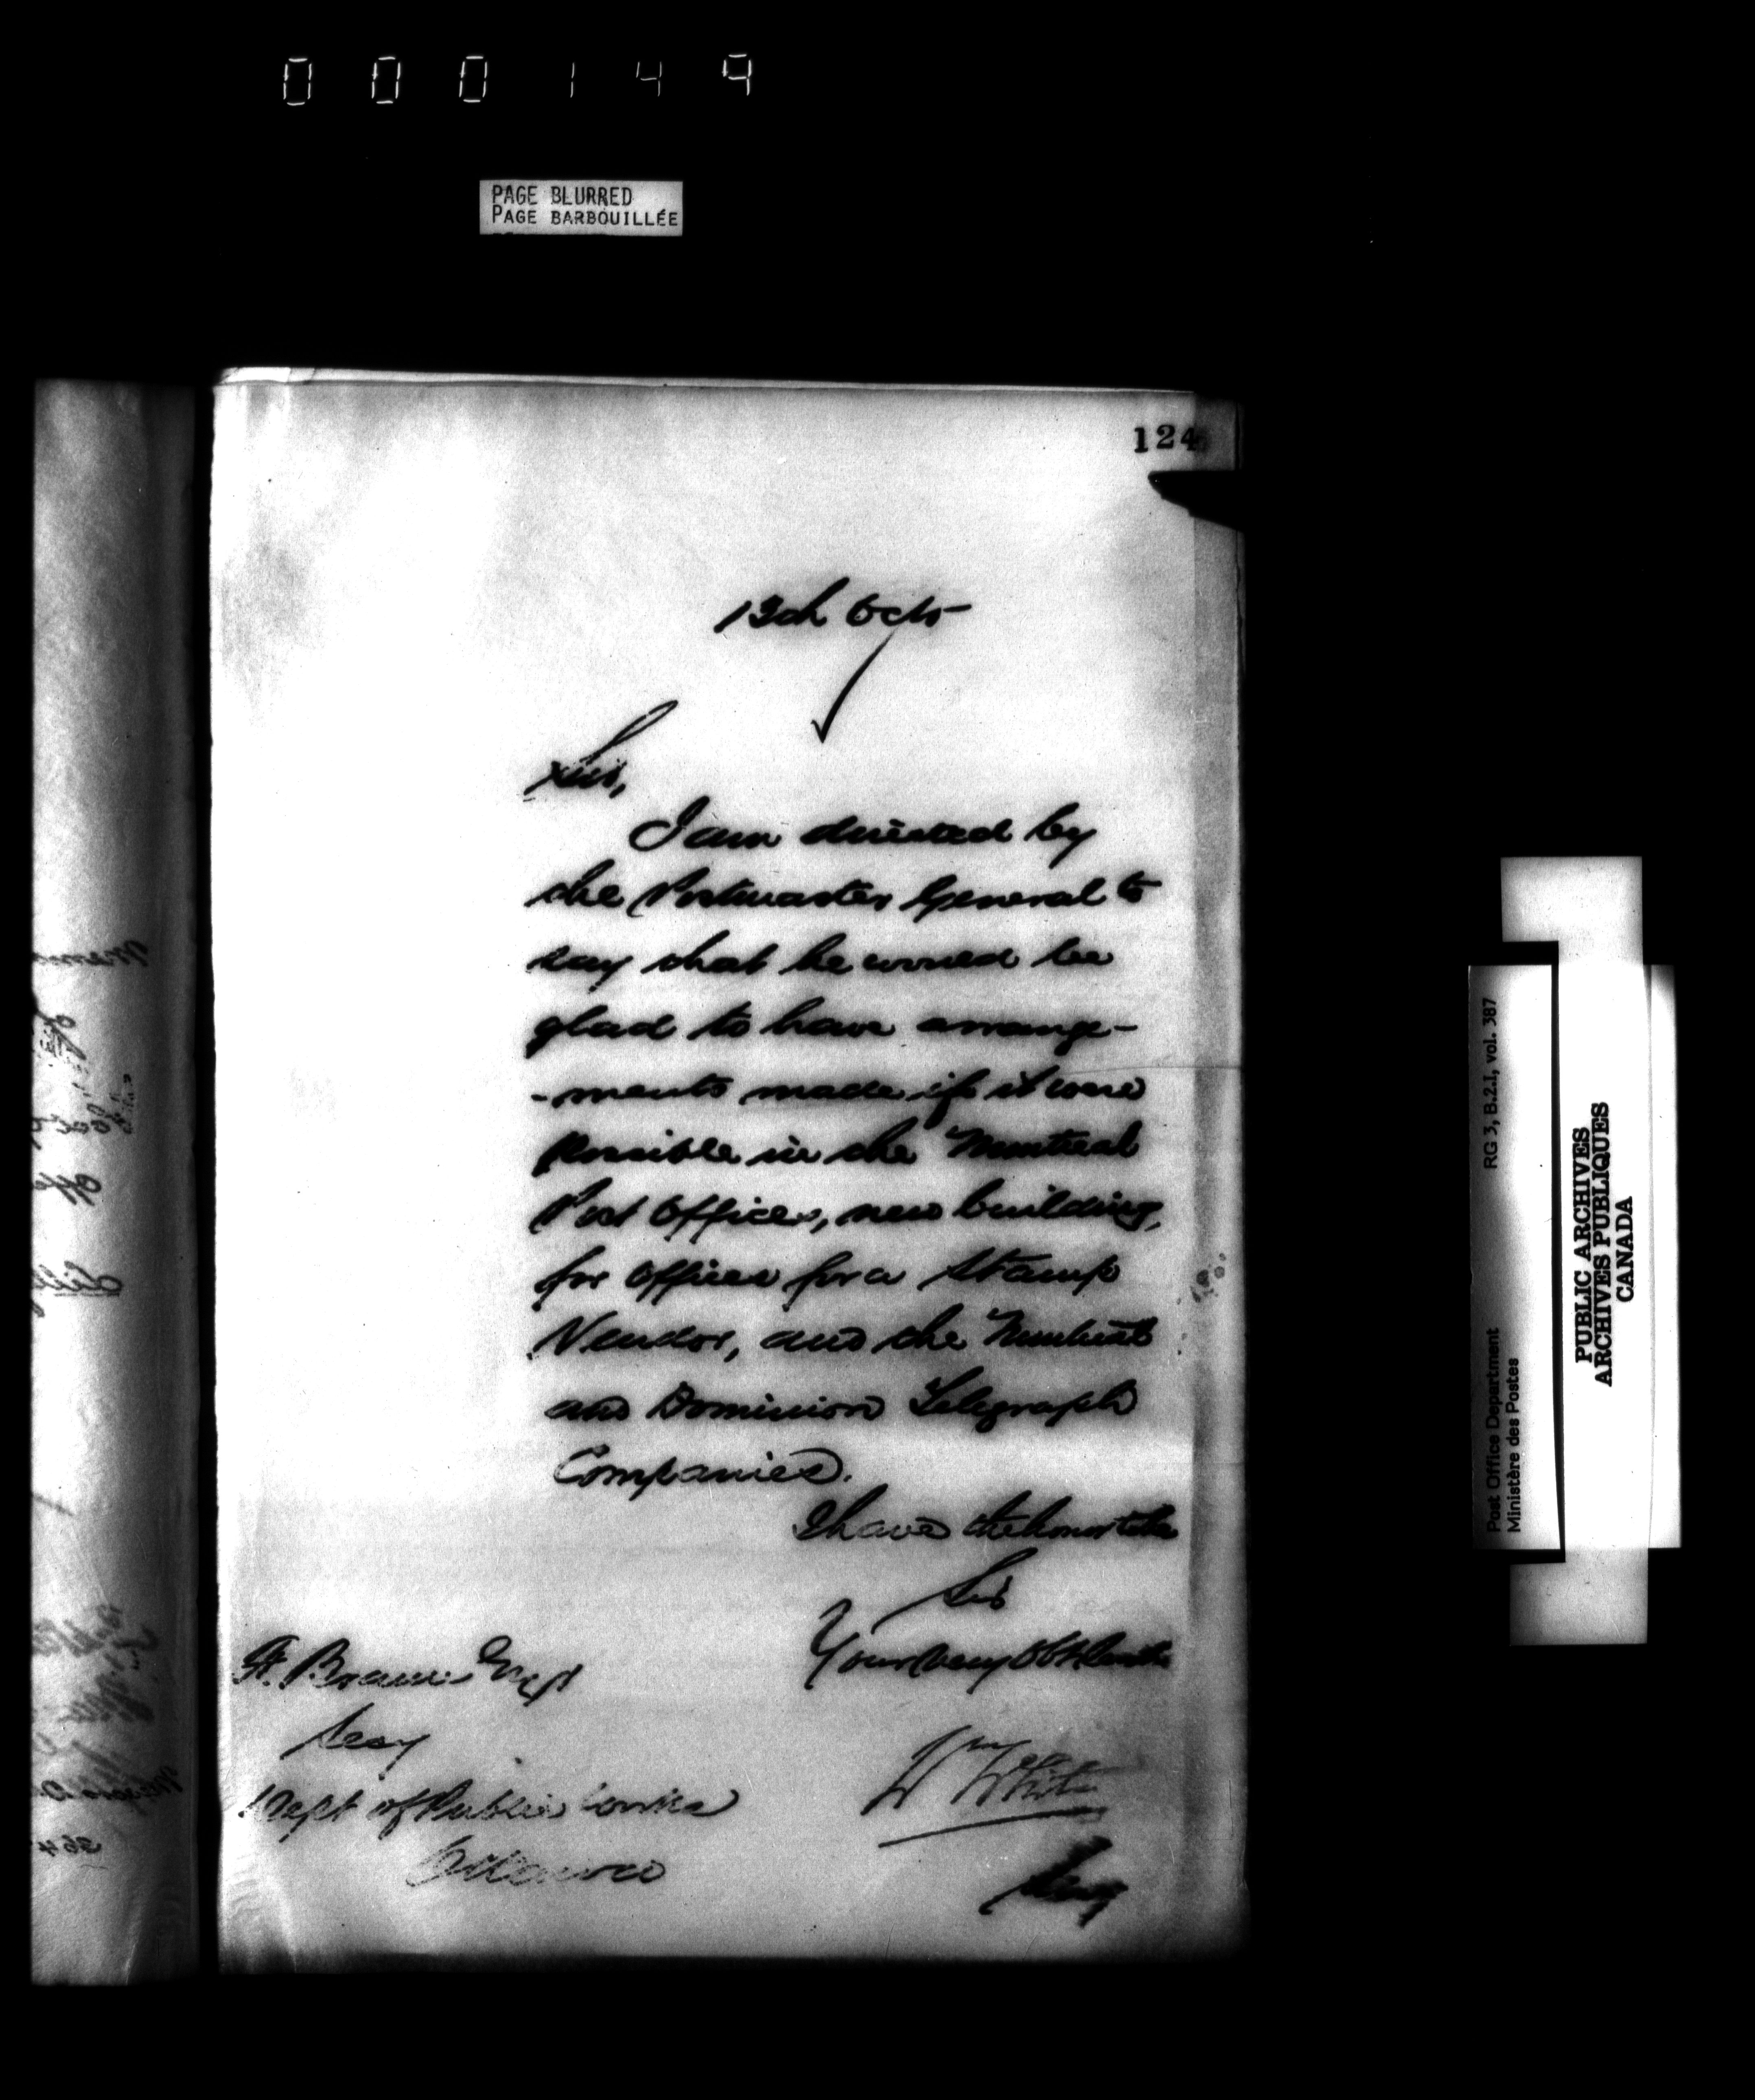 000149
PAGE BLURRED
PAGE BARBOUILLÉE
124
13th Octr
Sir,
I am directed by
the Postmaster General to
say that he would be
glad to have arrange-
-ments made if it were
possible in the Montreal
Post Office, new building,
for offices for a Stamp
Vendor, and the Montreal
and Dominion Telegraph
Companies.
I have the honor to be
Sir
Your very Obt Servt
F. Braun Esqr
Secy
Dept of Public Works
Ottawa
Wm White
Secy
364
RG 3, B.2.1, vol. 387
Post Office Department
Ministère des Postes
PUBLIC ARCHIVES
ARCHIVES PUBLIQUES
CANADA